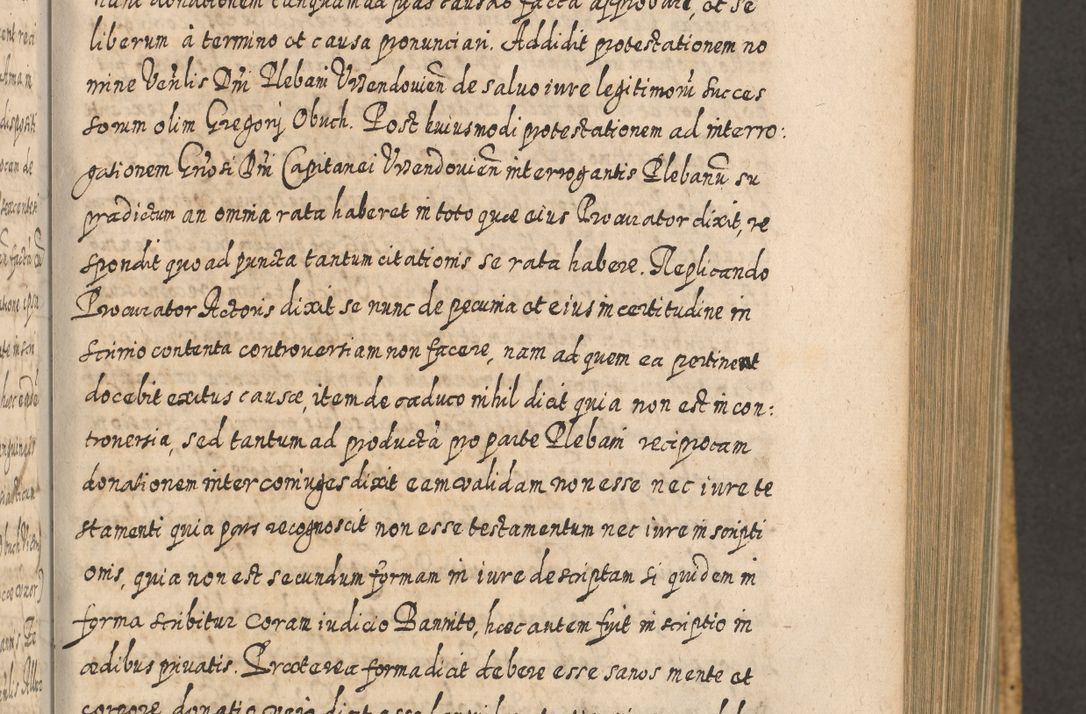 nunc donationem cunquam ad pias causas facta approbare, et se
liberum à termino et causa pronunciari. Addidit protestationem no
mine Venlis Dni Plebani Urzendovien de salvo iure legitimorũ succes
sorum olim Gregorij Obuch. Post huiusmodi protestationem ad interro:
gationem Gnosi Dni Capitanei Urzendovien interrogantis Plebanũ su
prædictum an omnia rata haberet in toto quæ eius Procurator dixit, re
spondit quo ad puncta tantum citationis se rata habere. Replicando
Procurator Actoris dixit se nunc de pecunia et eius incertitudine in
scrinio contenta controversiam non facere, nam ad quem ea pertinent
docebit exitus causæ, item de caduco nihil dicit quia non est in con:
troversia, sed tantum ad productã pro parte Plebani reciprocam
donationem inter coniuges dixit eam validam non esse nec iure te
stamenti quia pars recognoscit non esse testamentum nec iure inscripti
onis, quia non est secundum formam in iure descriptam si quidem in
forma scribitur coram iudicio Bannito, hæc autem fuit inscriptio in
ædibus privatis. Præterea forma dicit debere esse sanos mente et
corpore donatio vero